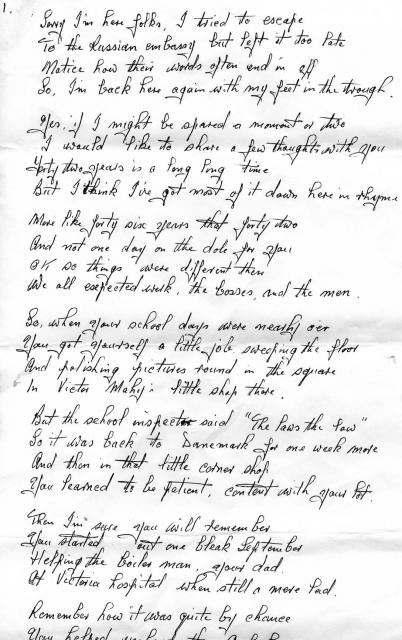 1.
Sorry I'm here folks, I tried to escape
To the Russian embassy but left it too late
Notice how their words often end in off
So, I'm back here again with my feet in the trough.
Yes, if I might be spared a moment or two
I would like to share a few thoughts with you
Forty two years is a long long time
But I think I've got most of it down here in rhyme
More like forty six years than forty two
And not one day on the dole for you
OK so things were different then
We all expected work, the bosses, and the men.
So, when your school days were nearly oer
You got yourself a little job, sweeping the floor
And polishing pictures round in the square
In Victor Mahy's little shop there.
But the school inspector said "The laws the law"
So it was back to Danemark for one week more
And then in that little corner shop
You learned to be patient, content with your lot.
Then I'm sure you will remember
You started out one bleak September
Helping the boiler man, your dad.
At Victoria hospital when still a mere lad.
Remember how it was quite by chance
You helped